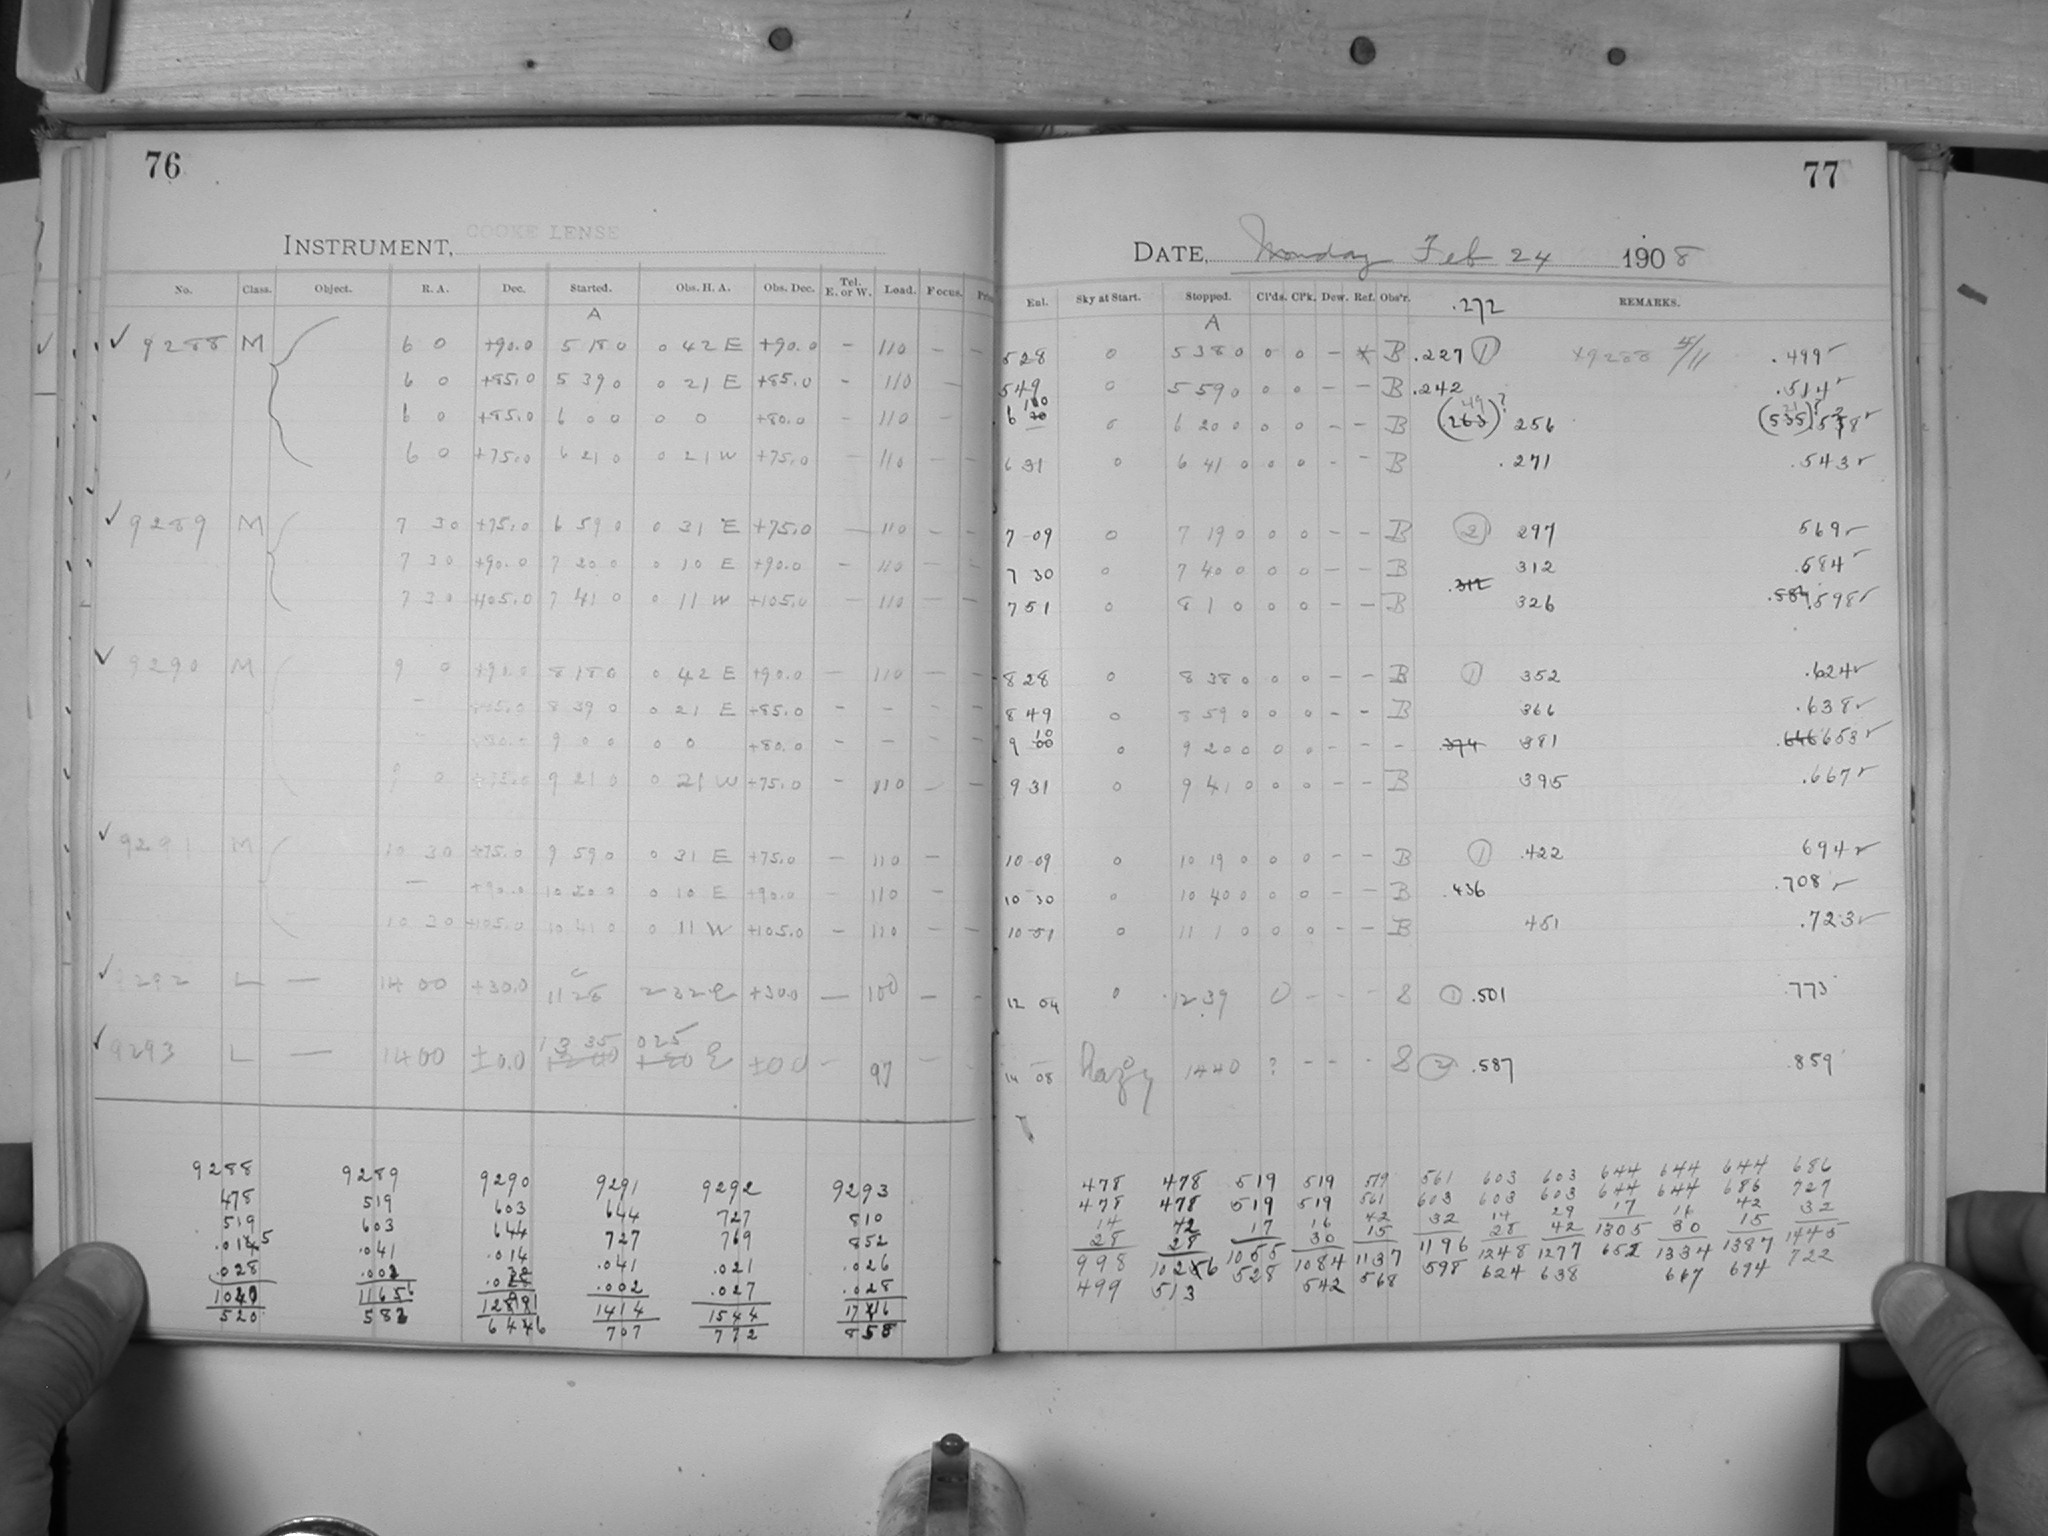 76
INSTRUMENT, COOKE LENSE
No. Class. Object. R. A. Dec. Started. Obs. H. A. Obs. Dec. Tel. E. or W. Load. Focus.
A
9288 M 6 0 +90.0 5 18 0 0 42 E +90.0 – 110 – –
6 0 +85.0 5 39 0 0 21 E +85.0 – 110 –
6 0 +85.0 6 0 0 0 0 +80.0 – 110 –
6 0 +75.0 6 21 0 0 21 W +75.0 – 110 – –
9289 M 7 30 +75.0 6 59 0 0 31 E +75.0 – 110 – –
7 30 +90.0 7 20 0 0 10 E +90.0 – 110 – –
7 30 +105.0 7 41 0 0 11 W +105.0 – 110 – –
9290 M 9 0 +90.0 8 18 0 0 42 E +90.0 – 110 – –
– +85.0 8 39 0 0 21 E +85.0 – – – –
+80.0 9 0 0 0 0 +80.0 – – – –
9 0 +75.0 9 21 0 0 21 W +75.0 – 110 – –
9291 M 10 30 +75.0 9 59 0 0 31 E +75.0 – 110 –
– +90.0 10 20 0 0 10 E +90.0 – 110 –
10 30 +105.0 10 41 0 0 11 W +105.0 – 110 – –
9292 L — 14 00 +30.0 11 28 2 32 E +30.0 — 100 – –
9293 L — 14 00 ±0.0 13 35 0 25 E ±00 – 97 –
9288 9289 9290 9291 9292 9293
478 519 603 644 727 810
519 603 644 727 769 852
.041 .014 .041 .021 .026
.028 .002 .002 .027 .028
1414 1544
520 582 646 707 772 858
77
DATE, Monday Feb 24 1908
Enl. Sky at Start. Stopped. Cl'ds. Cl'k. Dew. Ref. Obs'r. .272 REMARKS.
A
528 0 5 38 0 0 0 – * B .227 1 x9288 .499
549 0 5 59 0 0 0 – – B .242 .514
6 10 0 6 20 0 0 0 – – B (263)? 256 (535)?
6 31 0 6 41 0 0 0 – – B .271 .543
7 09 0 7 19 0 0 0 – – B 2 297 569
7 30 0 7 40 0 0 0 – – B 312 .584
7 51 0 8 1 0 0 0 – – B .312 326 .584 .598
8 28 0 8 38 0 0 0 – – B 1 352 .624
8 49 0 8 59 0 0 0 – – B 366 .638
9 10 0 9 20 0 0 0 – – – .374 381 .646 653
9 31 0 9 41 0 0 0 – – B 395 .667
10 09 0 10 19 0 0 0 – – B 1 .422 694
10 30 0 10 40 0 0 0 – – B .436 .708
10 51 0 11 1 0 0 0 – – B 451 .723
12 04 0 12 39 0 – – – S 1 .501 .773
14 08 hazy 14 40 ? – – – S 2 .587 .859
478 478 519 519 519 561 603 603 644 644 644 686
478 478 519 519 561 603 603 603 644 644 686 727
14 42 17 16 42 32 14 29 17 16 42 32
28 28 1055 30 15 1196 28 42 1305 30 15 1445
998 1026 528 1084 1137 598 1248 1277 652 1334 1387 722
499 513 542 568 624 638 667 694